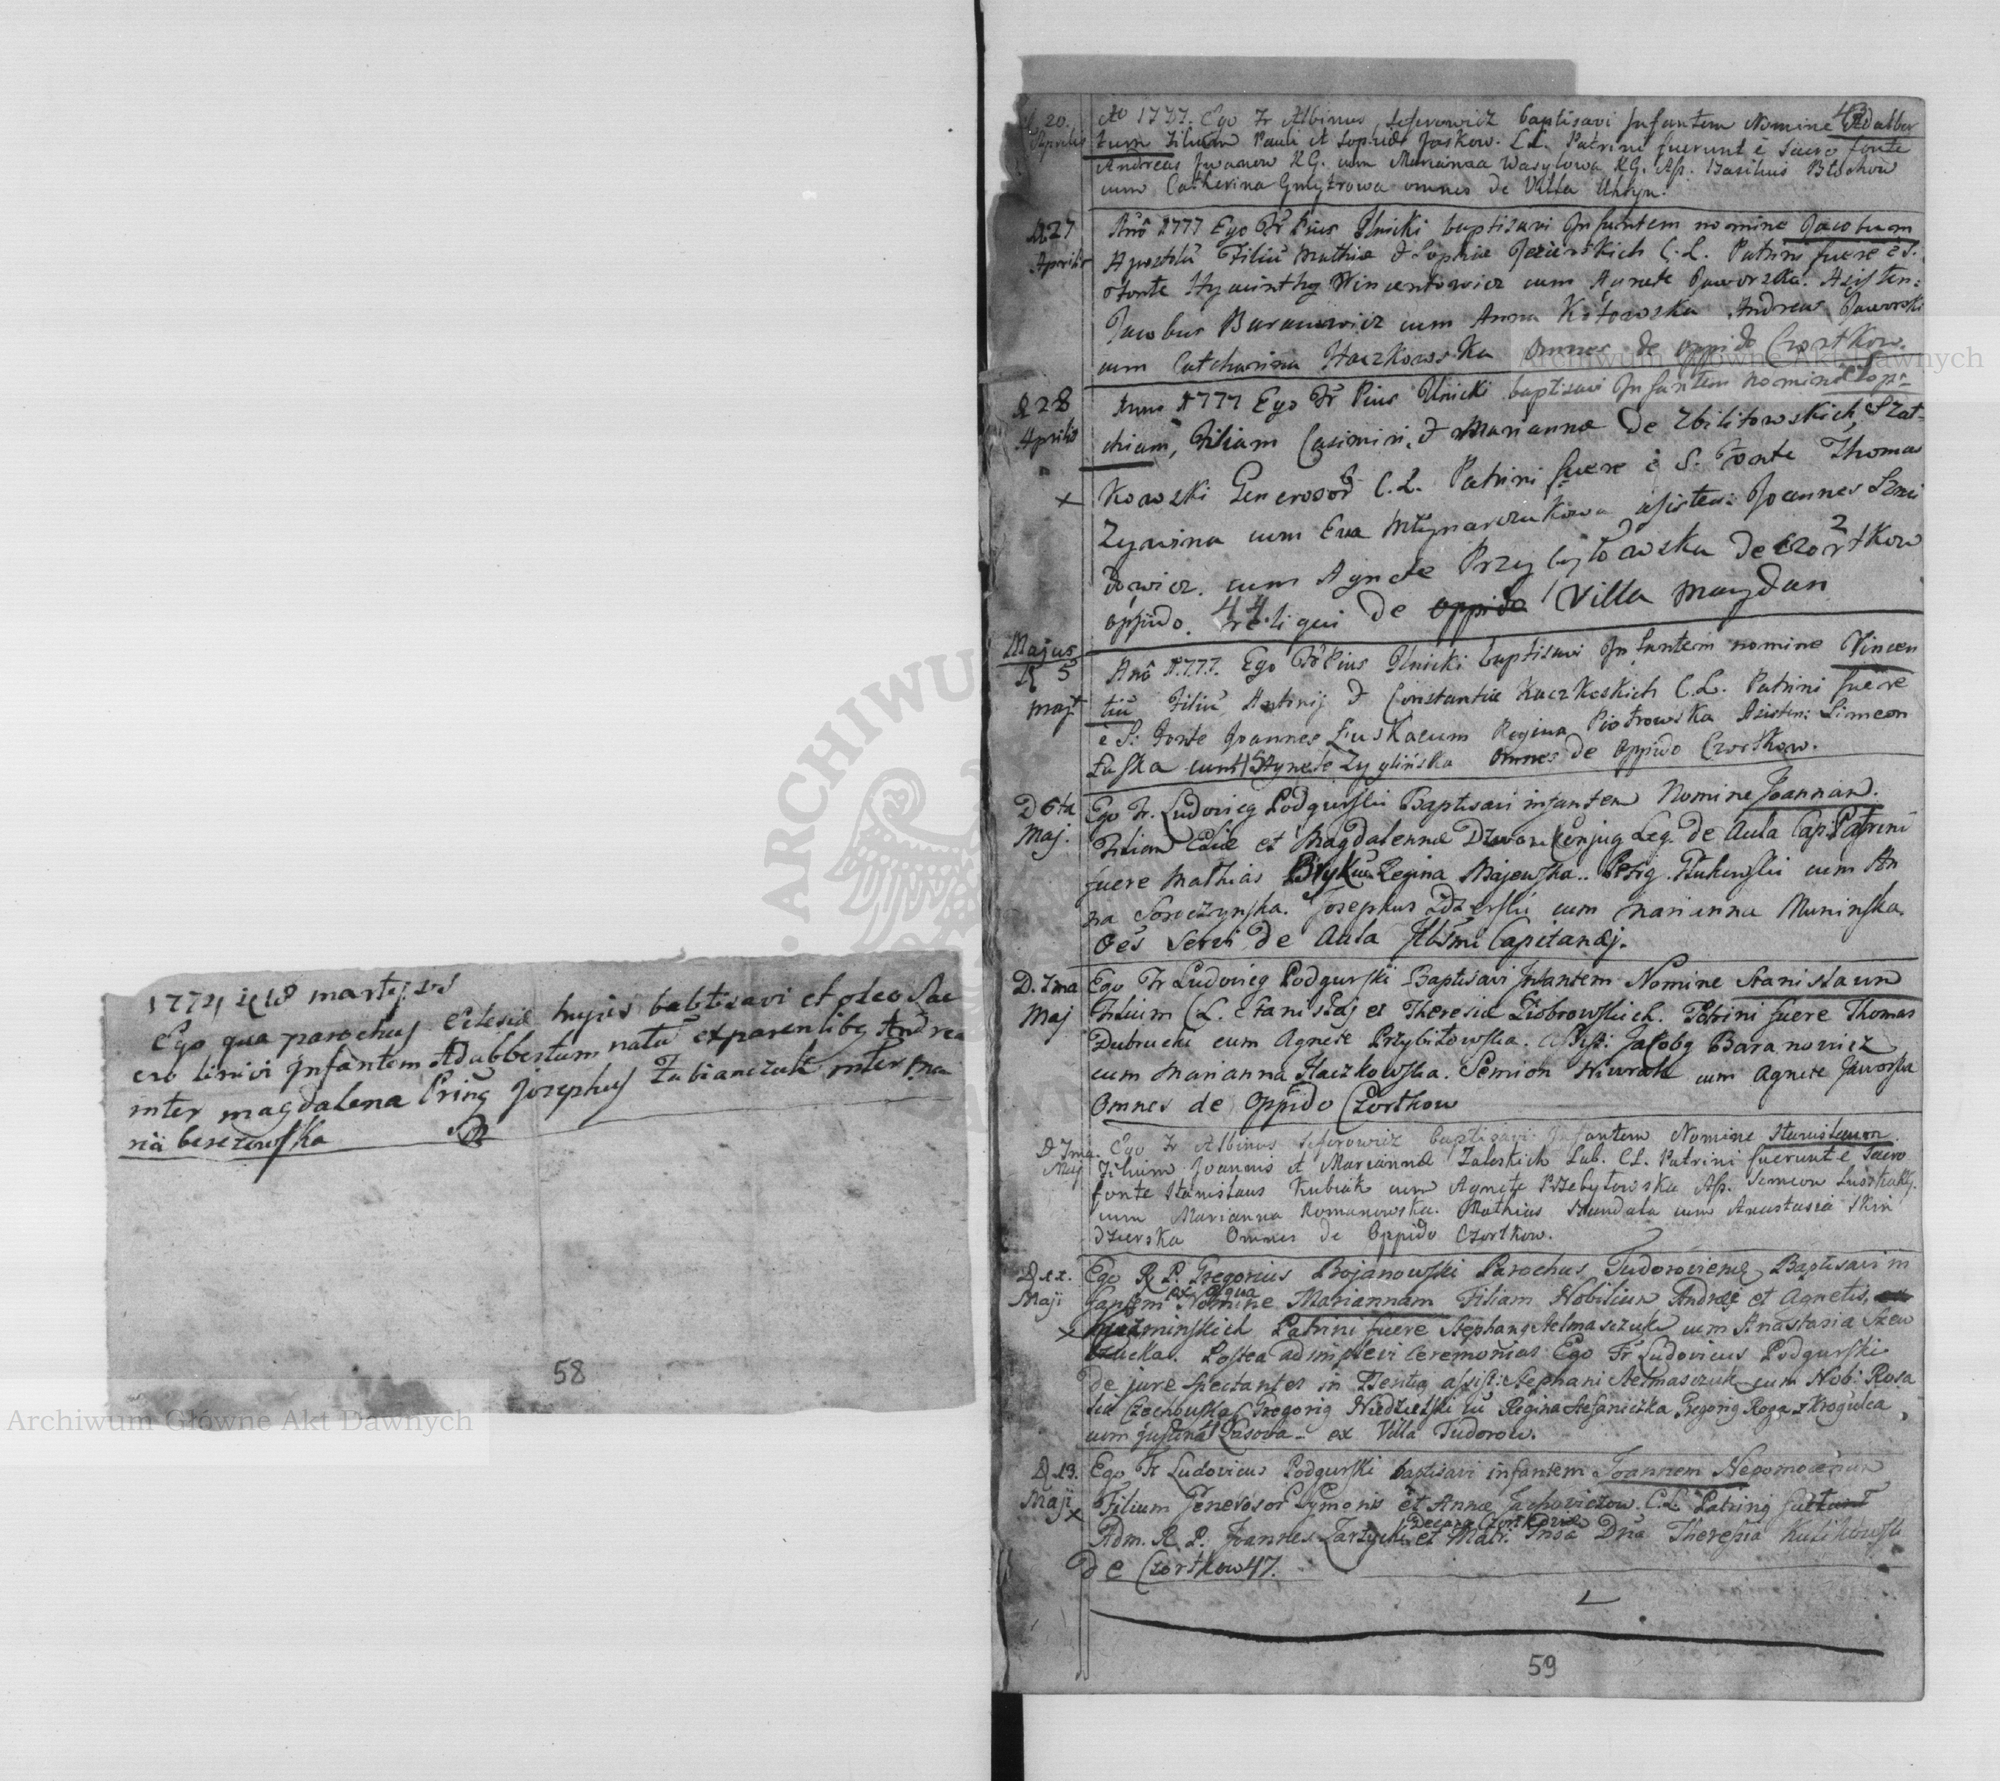 1774 18 martij
Ego qua parochus Eclesiæ hujus babtisavi et oleo Sac
ro linivi Infantem Adalbertum natū ex parentibq Andrea
inter magdalena Josephus Fabianczuk inter ma
ria berezowska
58
Archiwum Główne Akt Dawnych
20. Aprilis
Aō 1777. Ego Fr Albinus Seferowicz baptisavi Infantem Nomine Adalber
tum Filium Pauli et Sophiæ Jaskow. C.L. Patrini fuerunt e Sacro fonte
Andreas Jwanow KG. cum Marianna Wasylowa KG. Ass. Basilius Błochow
cum Catherina Gmytrowa omnes de Villa Uhryn.
43
D 27 Aprilis
Annō 1777 Ego Fr Pius Ilnicki baptisavi Infantem nomine Jacobum
Apostolū Filiū Mathiæ & Sophiæ Jezierskich C.L. Patrini fuere è S.
Fonte Hyacinthq Wincentowicz cum Agnete Jaworzka. Assisten:
Jacobus Baranowicz cum Anna Kotowska Andreas Jaworski
cum Catharina Haczkowska Omnes de oppido Czortkow.
Archiwum Główne Akt Dawnych
D 28 Aprilis
Anno 1777 Ego Fr Pius Ilnicki baptisavi Infantem nomine Sop-
chiam, Filiam Casimiri & Mariannæ de Zbilitowskich, Szat-
kowski Generosor C.L. Patrini fuere è S. Fonte Thoma
Zywina cum Eva Młynarczukowa assisten: Joannes
dowicz cum Agnete Przybyłowska de Czortkow
oppido. reliqui de oppido Villa Maydan
44.
Majus
D 5 Maji
Annō 1777. Ego Fr Pius Ilnicki baptisavi Infantem nomine Vincen
tiū Filiū Antonij & Constantiæ Kaczkoskich C.L. Patrini fuere
e S. Fonte Joannes Łuska cum Regina Piotrowska Asisten: Simeon
Łuska cum Agnete Zyglińska Omnes de oppido Czortkow.
45
D 6ta Maj.
Ego Fr. Ludovicq Podgurski Baptisavi infantem Nomine Joannam.
Filiam Eliæ et Magdalennæ Conjug Leg. de Aula Cap: Patrini
fuere Mathias Bryk cum Regina Majewska.. cum An
na Soroczynska. Josephus cum Marianna Muninska.
Oēs Servi de Aula Illsmi Capitanej.
D. 7ma Maj
Ego Fr Ludovicq Podgurski Baptisavi Infantem Nomine Stanislaum
Filium C.L. Stanislaj et Theresiæ Ziobrowskich. Patrini fuere Thomas
Dubrucki cum Agnete Przybitowska. Assist: Jacobq Baranowicz
cum Marianna Haczkowska. Semion cum Agnete Jaworska
Omnes de Oppido Czortkow
D 7ma. Maj
Ego Fr Albinus Seferowicz baptisavi Infantem Nomine Stanislaum.
Filium Joannis et Mariannæ Zaleskich Lab. CL. Patrini fuerunt e Sacro
fonte Stanislaus Kubiak cum Agnete Przebytowska Ass. Simeon
cum Marianna Romanowska. Mathias Szandała cum Anastasia Skin
dzierska Omnes de Oppido Czortkow.
Maji
Ego R P. Gregorius Bojanowski Parochus Baptisavi in
fantem ex aqua Nomine Mariannam Filiam Nobilium Andreæ et Agnetis,
Kuzminskich Patrini fuere Stephanq Aelmaszczuk cum Anastasia Szew
czucka. Postea adimplevi Ceremonias Ego Fr Ludovicus Podgurski
de jure spectantes in assist: Stephani Aelmasczuk cum Nob: Rosa
lia Czechowska Gregoriq Niedzielski cū Regina Stefaniczka Gregoriq
cum Justina ex Villa Tudorow.
D 13. Maji
Ego Fr Ludovicus Podgurski baptisavi infantem Joannem Nepomocenum
Filium Generosor Symonis et Annæ C.L. Patrinq
Adm. R. P. Joannes Zarzycki Decanq Czortkovien et Matr: Gnsa Dna Theresia
de Czortkow 47.
59